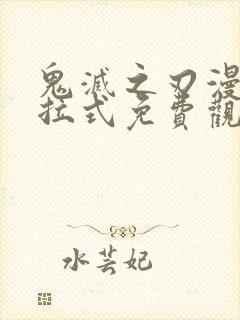 鬼滅之刃漫
拉式免費觀
水芸妃